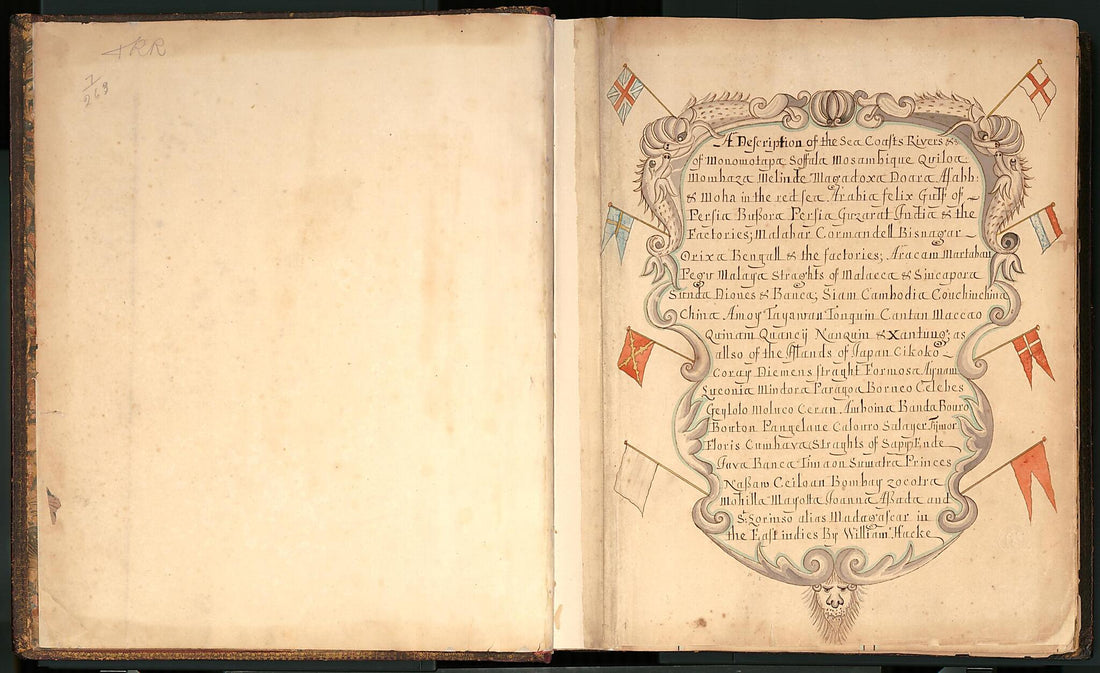 RR
1
269
A Description of the Sea Coasts Rivers &c
of Monomotapa Soffala Mosambique Quiloa
Mombaza Melinde Magadoxa Doara Asabb:
& Moha in the red sea. Arabia felix Gulf of
Persia Bussora Persia Guzarat India & the
Factories; Malabar Cormandell Bisnagar
Orixa Bengall & the factories; Aracam Martaban
Pegu Malaya Straghts of Malacca & Sincapora
Sunda Diones & Banca; Siam Cambodia Couchinchina
China Amoy Tayawan Tonquin Cantan Maccao
Quinam Quancij Nanquin & Xantung; as
allso of the Ilands of Iapan Cikoko
Coray Diemens straght Formosa Aynam
Luconia Mindora Paragoa Borneo Celebes
Geylolo Moluco Ceran Amboina Banda Bouro
Bouton Pangelane Calouro Salayer Tymor
Floris Cumbava Straghts of Sapy Ende
Iava Banca Timaon Sumatra Princes
Nassaw Ceiloan Bombay zocotra
mohilla Mayotta Ioanna Assada and
St Lorinso alias Madagascar in
the East indies By William Hacke